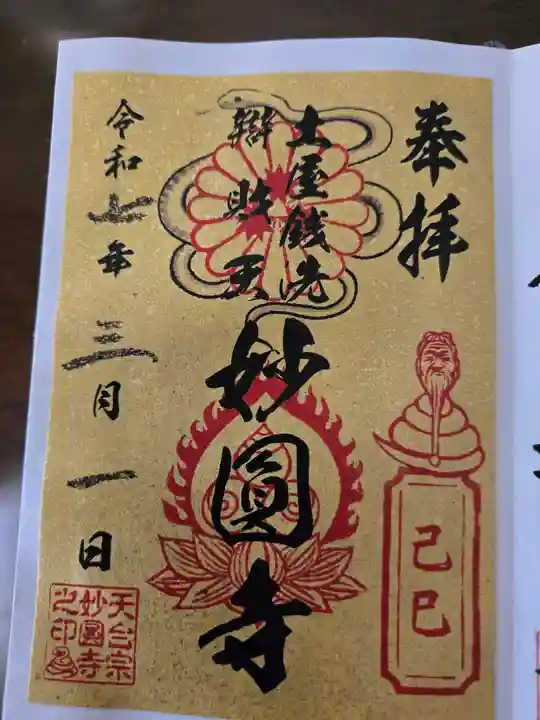 奉拝
己巳
土屋銭洗
辯財天
妙圓寺
令和七年
三月
一日
天台宗
妙圓寺
之印